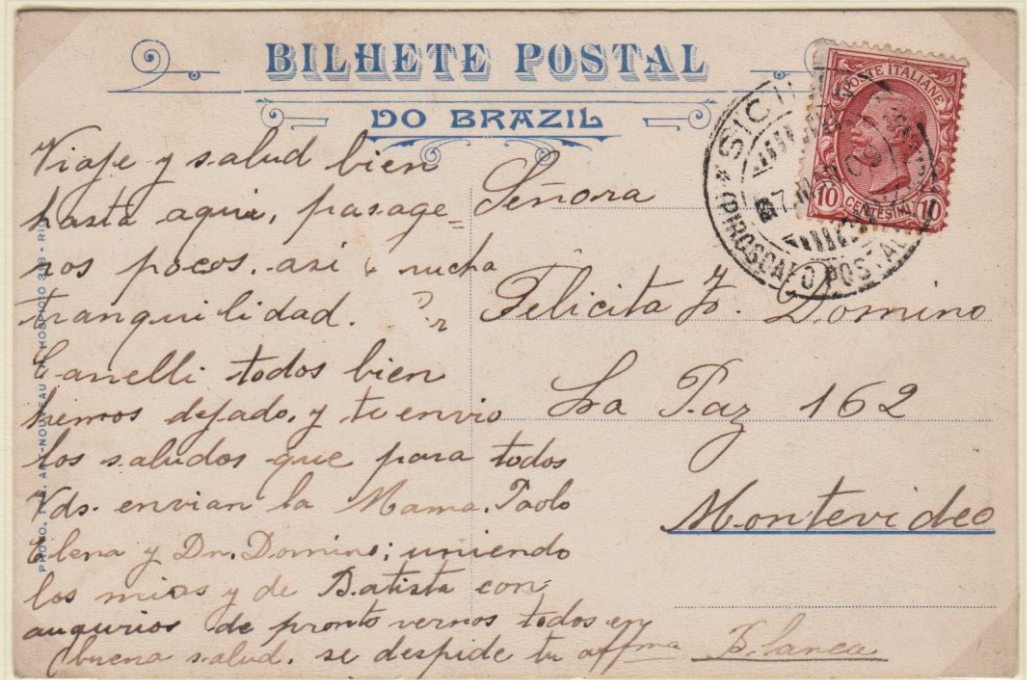 BILHETE POSTAL
DO BRAZIL
Viaje y salud bien
hasta aqui, pasage=
ros pocos. asi mucha
tranquilidad.
Canelli todos bien
hemos dejado, y te envio
los saludos que para todos
Vds. envian la Mama. Paolo
Elena y Dn. Domino; uniendo
los mios y de Batista con
augurios de pronto vernos todos en
buena salud. se despide tu affma Blanca
Señora
Felicita Domino
La Paz 162
Montevideo
POSTE ITALIANE
10 CENTESIMI 10
PIROSCAFO POSTALE